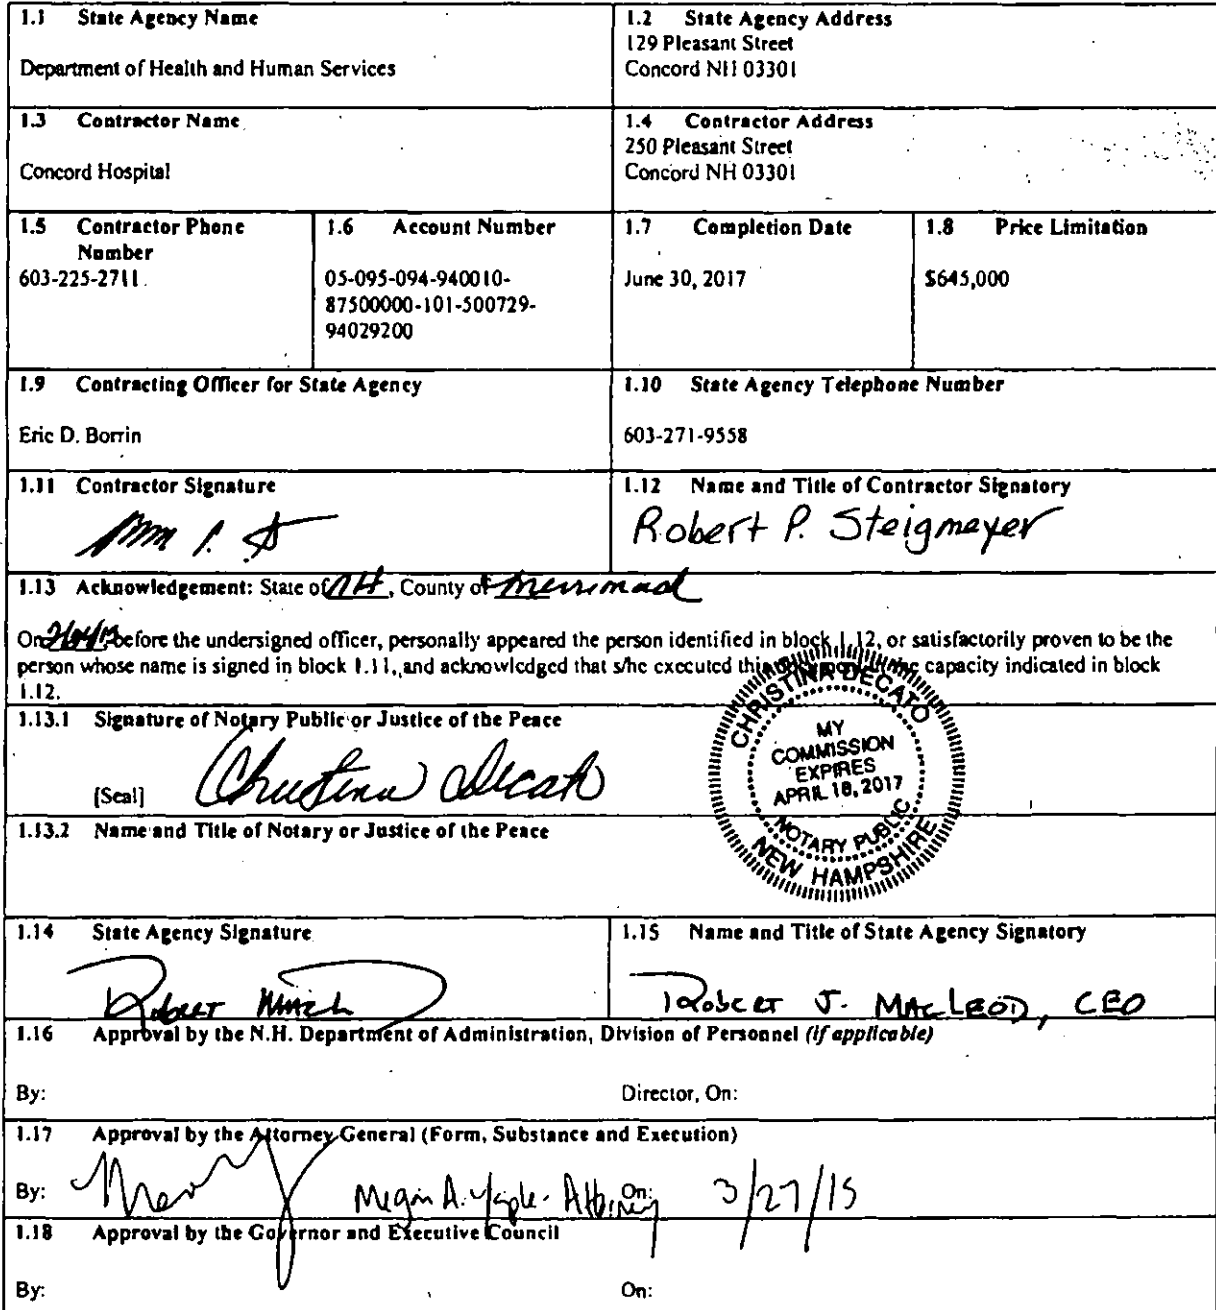 1.1 State Agency Name
Department of Health and Human Services
1.2 State Agency Address
129 Pleasant Street
Concord NH 03301
1.3 Contractor Name
Concord Hospital
1.4 Contractor Address
250 Pleasant Street
Concord NH 03301
1.5 Contractor Phone
Number
603-225-2711
1.6 Account Number
05-095-094-940010-
87500000-101-500729-
94029200
1.7 Completion Date
June 30, 2017
1.8 Price Limitation
$645,000
1.9 Contracting Officer for State Agency
Eric D. Borrin
1.10 State Agency Telephone Number
603-271-9558
1.11 Contractor Signature
1.12 Name and Title of Contractor Signatory
Robert P. Steigmeyer
1.13 Acknowledgement: State of NH, County of Merrimack
On before the undersigned officer, personally appeared the person identified in block 1.12, or satisfactorily proven to be the
person whose name is signed in block 1.11, and acknowledged that s/he executed this capacity indicated in block
1.12.
1.13.1 Signature of Notary Public or Justice of the Peace
[Seal]
Christina Decato
CHRISTINA DECATO
MY
COMMISSION
EXPIRES
APRIL 18, 2017
NOTARY PUBLIC
NEW HAMPSHIRE
1.13.2 Name and Title of Notary or Justice of the Peace
1.14 State Agency Signature
Robert
1.15 Name and Title of State Agency Signatory
Robert J. MacLeod, CEO
1.16 Approval by the N.H. Department of Administration, Division of Personnel (if applicable)
By:
Director, On:
1.17 Approval by the Attorney General (Form, Substance and Execution)
By: Megan A. Yaple - Attorney On: 3/27/15
1.18 Approval by the Governor and Executive Council
By:
On: